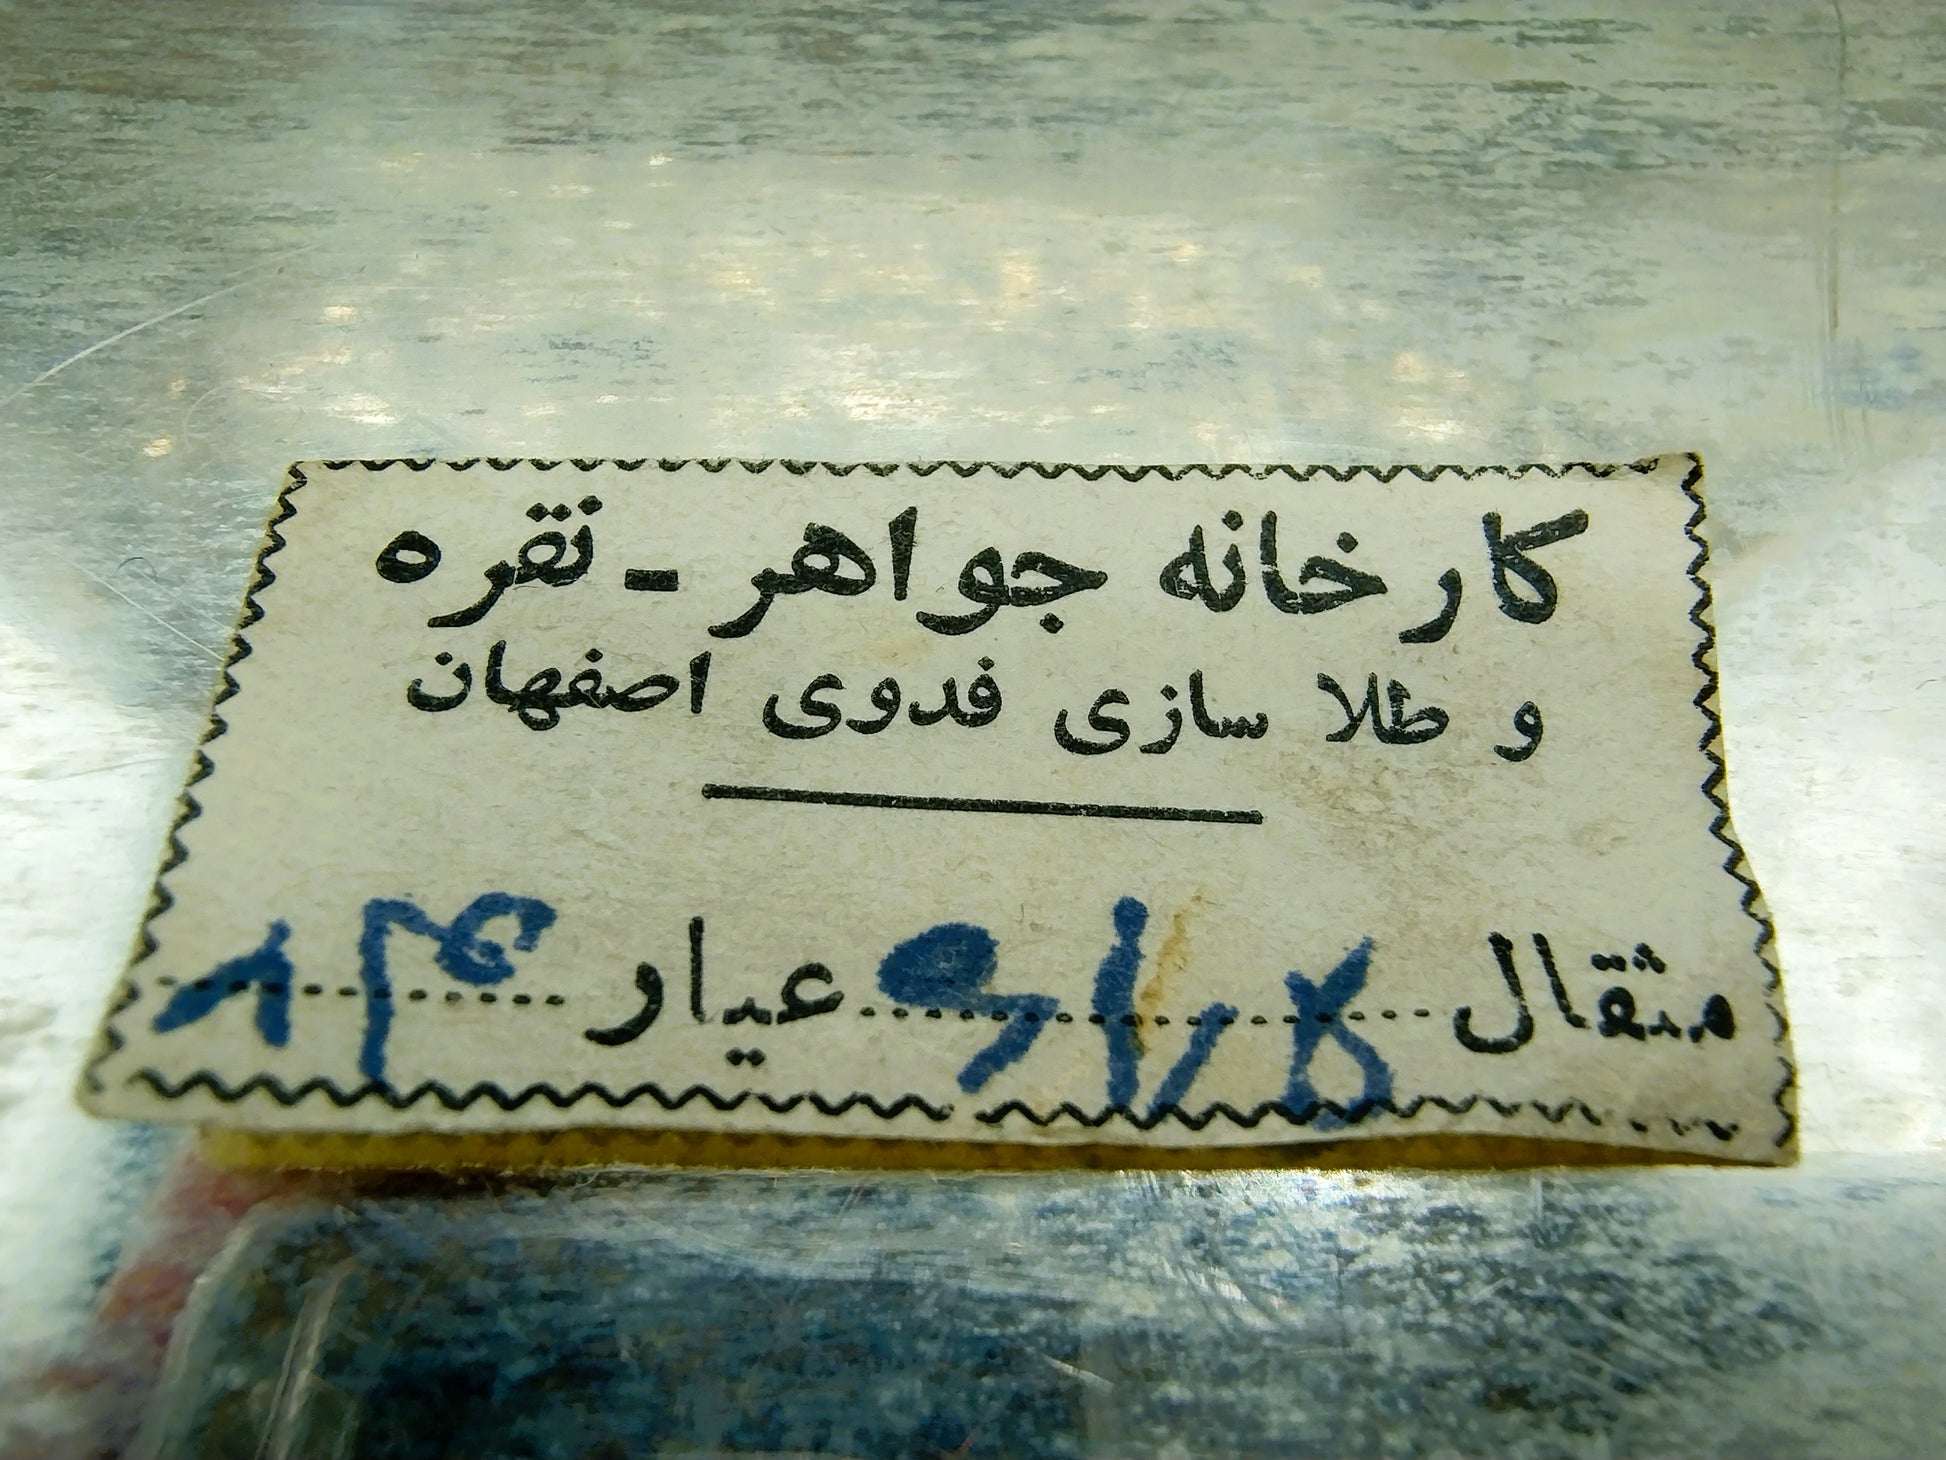 کارخانه جواهر - نقره
و طلا سازی فدوی اصفهان
مثقال عیار ۸۴